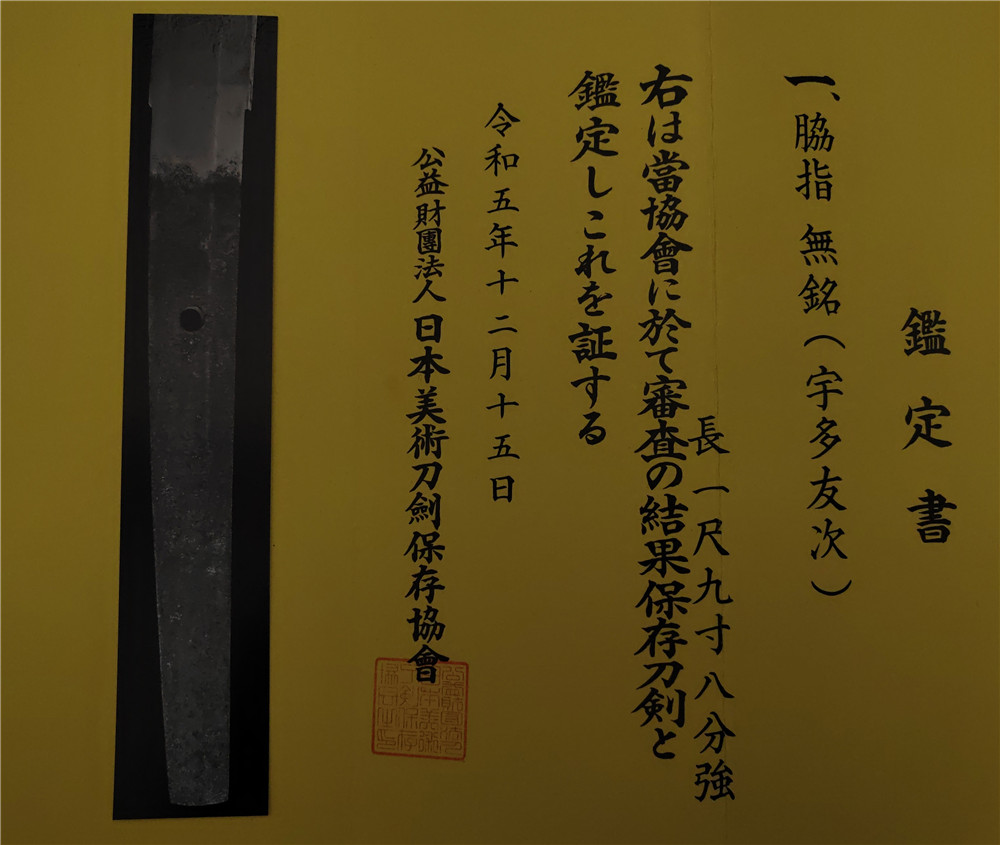 鑑定書
一、脇指 無銘（宇多友次）
長 一尺九寸八分強
右は當協會に於て審査の結果保存刀剣と
鑑定しこれを証する
令和五年十二月十五日
公益財團法人日本美術刀劍保存協會